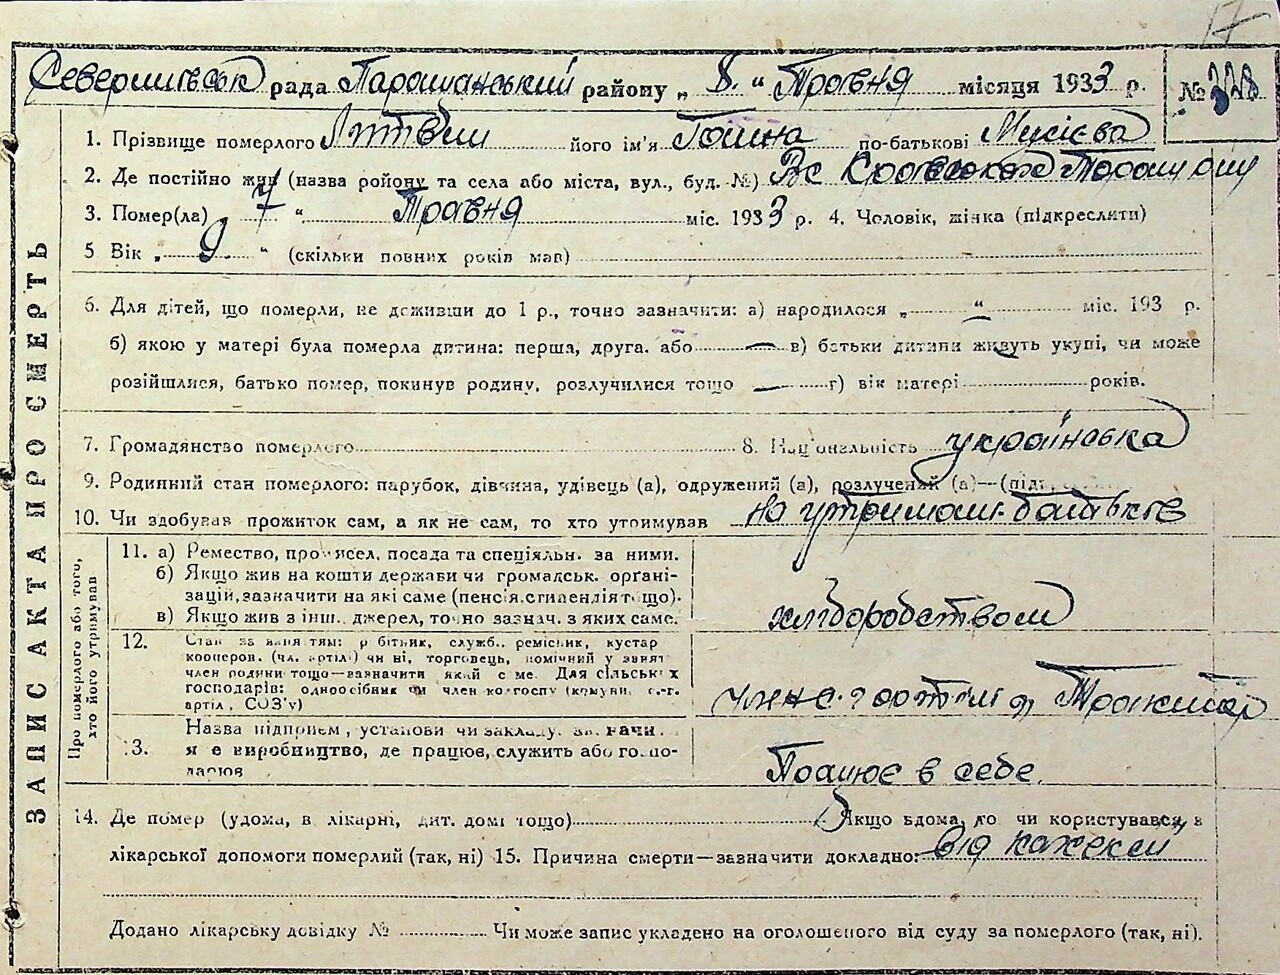 17
рада района „ 8. “ Травня місяця 1933 р. № 328
1. Прізвище померлого Литвин його ім'я по-батькові
2. Де постійно жив (назва району та села або міста, вул., буд. №)
3. Помер(ла) 7 “ Травня міс. 1933 р. 4. Чоловік, жінка (підкреслити)
5 Вік „ 9 “ (скільки повних років мав)
6. Для дітей, що померли, не доживши до 1 р., точно зазначити: а) народилося „ “ міс. 193 р.
б) якою у матері була померла дитина: перша, друга. або — в) батьки дитини живуть укупі, чи може
розійшлися, батько помер, покинув родину, розлучилися тощо — г) вік матері років.
7. Громадянство померлого 8. Національність українська
9. Родинний стан померлого: парубок, дівчина, удівець (а), одружений (а), розлучений (а)—
10. Чи здобував прожиток сам, а як не сам, то хто утримував на утриман. батьків
ЗАПИС АКТА ПРО СМЕРТЬ
Про померлого або того, хто його утримував
11. а) Ремество, промисел, посада та спеціяльн. за ними.
б) Якщо жив на кошти держави чи громадськ. орґані-
зацій, зазначити на які саме (пенсія, стипендія тощо).
в) Якщо жив з інш. джерел, точно зазнач. з яких саме.
хліборобством
12. Стан за заняттям: робітник, служб., ремісник, кустар
кооперов. (чл. артілі) чи ні, торговець, помічний у занят.
член родини тощо—зазначити який саме. Для сільських
господарів: одноосібник чи член колгоспу (комуни, с.-г.
артіл., СОЗ'у)
13. Назва підприєм., установи чи закладу, зазначи.
я е виробництво, де працює, служить або госпо-
дарює
Працює в себе.
14. Де помер (удома, в лікарні, дит. домі тощо) Якщо вдома, то чи користувався
лікарської допомоги померлий (так, ні) 15. Причина смерти—зазначити докладно: від кахексії
Додано лікарську довідку № Чи може запис укладено на оголошеного від суду за померлого (так, ні).